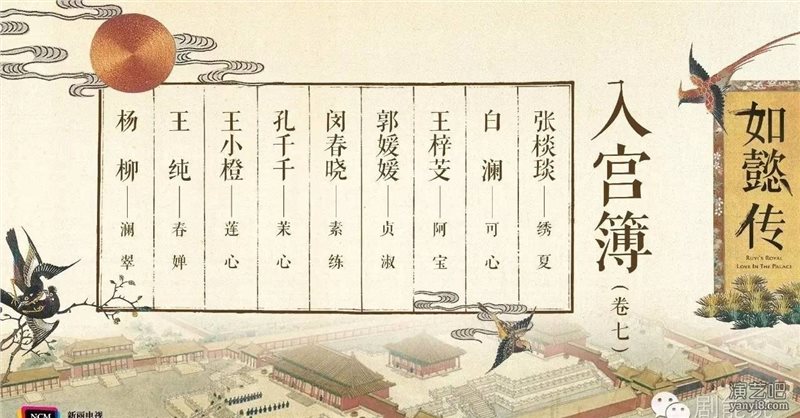 如懿传
RUYI'S ROYAL
LOVE IN THE PALACE
入宫簿(卷七)
张棪琰——绣夏
白澜——可心
王梓芠——阿宝
郭媛媛——贞淑
闵春晓——素练
孔千千——茉心
王小橙——莲心
王纯——春婵
杨柳——澜翠
NCM
新丽电视
演艺吧
yanyi8.com